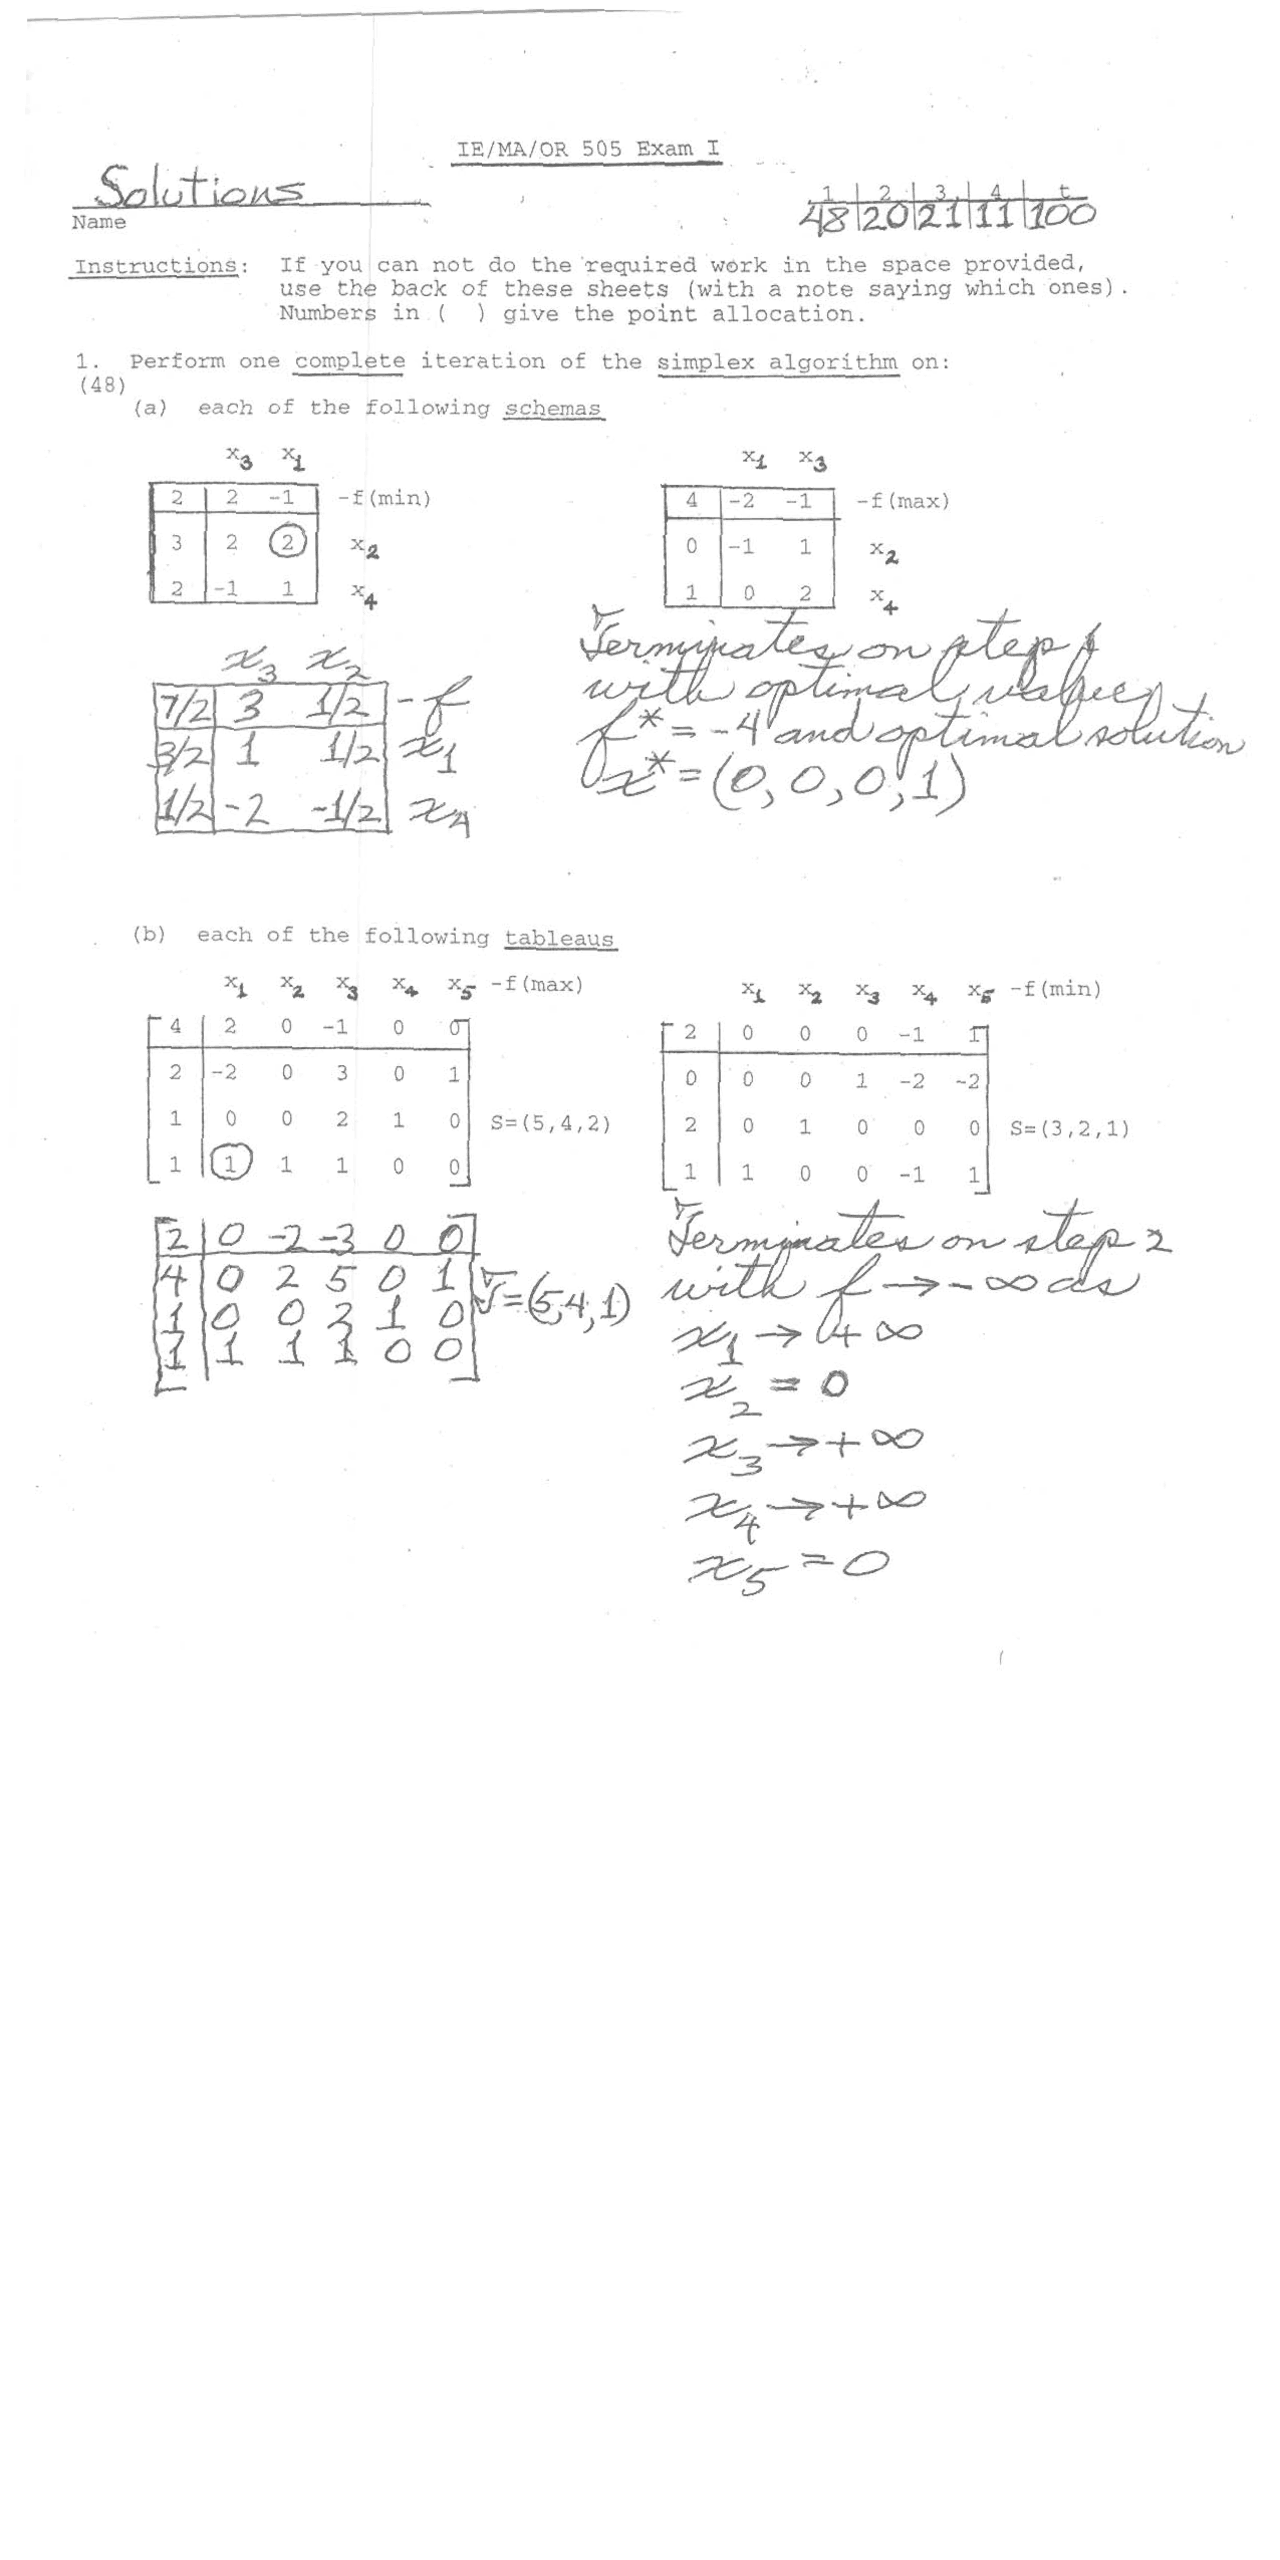 IE/MA/OR 505 Exam I
Solutions
Name
1 2 3 4 t
48 20 21 11 100
Instructions: If you can not do the required work in the space provided,
use the back of these sheets (with a note saying which ones).
Numbers in ( ) give the point allocation.
1. Perform one complete iteration of the simplex algorithm on:
(48)
(a) each of the following schemas
x3 x1
2 2 -1 -f(min)
3 2 2 x2
2 -1 1 x4
x1 x3
4 -2 -1 -f(max)
0 -1 1 x2
1 0 2 x4
x3 x2
7/2 3 1/2 -f
3/2 1 1/2 x1
1/2 -2 -1/2 x4
Terminates on step 1
with optimal value
f* = -4 and optimal solution
x* = (0, 0, 0, 1)
(b) each of the following tableaus
x1 x2 x3 x4 x5 -f(max)
4 2 0 -1 0 0
2 -2 0 3 0 1
1 0 0 2 1 0 S=(5,4,2)
1 1 1 1 0 0
x1 x2 x3 x4 x5 -f(min)
2 0 0 0 -1 1
0 0 0 1 -2 -2
2 0 1 0 0 0 S=(3,2,1)
1 1 0 0 -1 1
2 0 -2 -3 0 0
4 0 2 5 0 1
1 0 0 2 1 0 =(5,4,1)
1 1 1 1 0 0
Terminates on step 2
with f → -∞ as
x1 → +∞
x2 = 0
x3 → +∞
x4 → +∞
x5 = 0